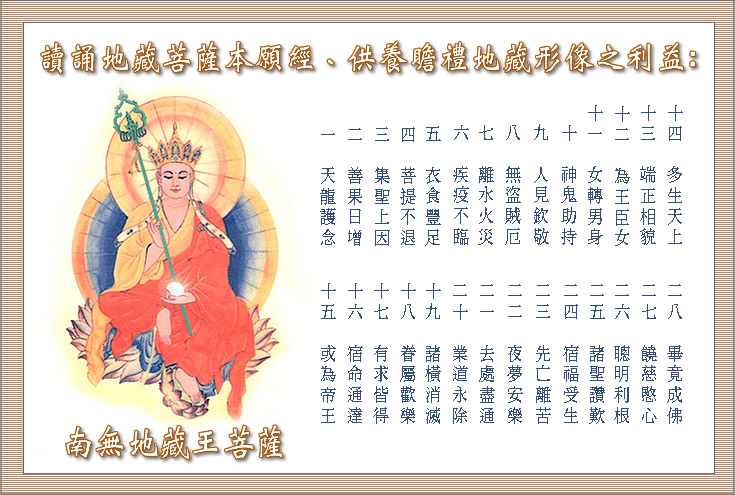 讀誦地藏菩薩本願經、供養瞻禮地藏形像之利益:
一 天龍護念
二 善果日增
三 集聖上因
四 菩提不退
五 衣食豐足
六 疾疫不臨
七 離水火災
八 無盜賊厄
九 人見欽敬
十 神鬼助持
十一 女轉男身
十二 為王臣女
十三 端正相貌
十四 多生天上
十五 或為帝王
十六 宿命通達
十七 有求皆得
十八 眷屬歡樂
十九 諸橫消滅
二十 業道永除
二一 去處盡通
二二 夜夢安樂
二三 先亡離苦
二四 宿福受生
二五 諸聖讚歎
二六 聰明利根
二七 饒慈愍心
二八 畢竟成佛
南無地藏王菩薩